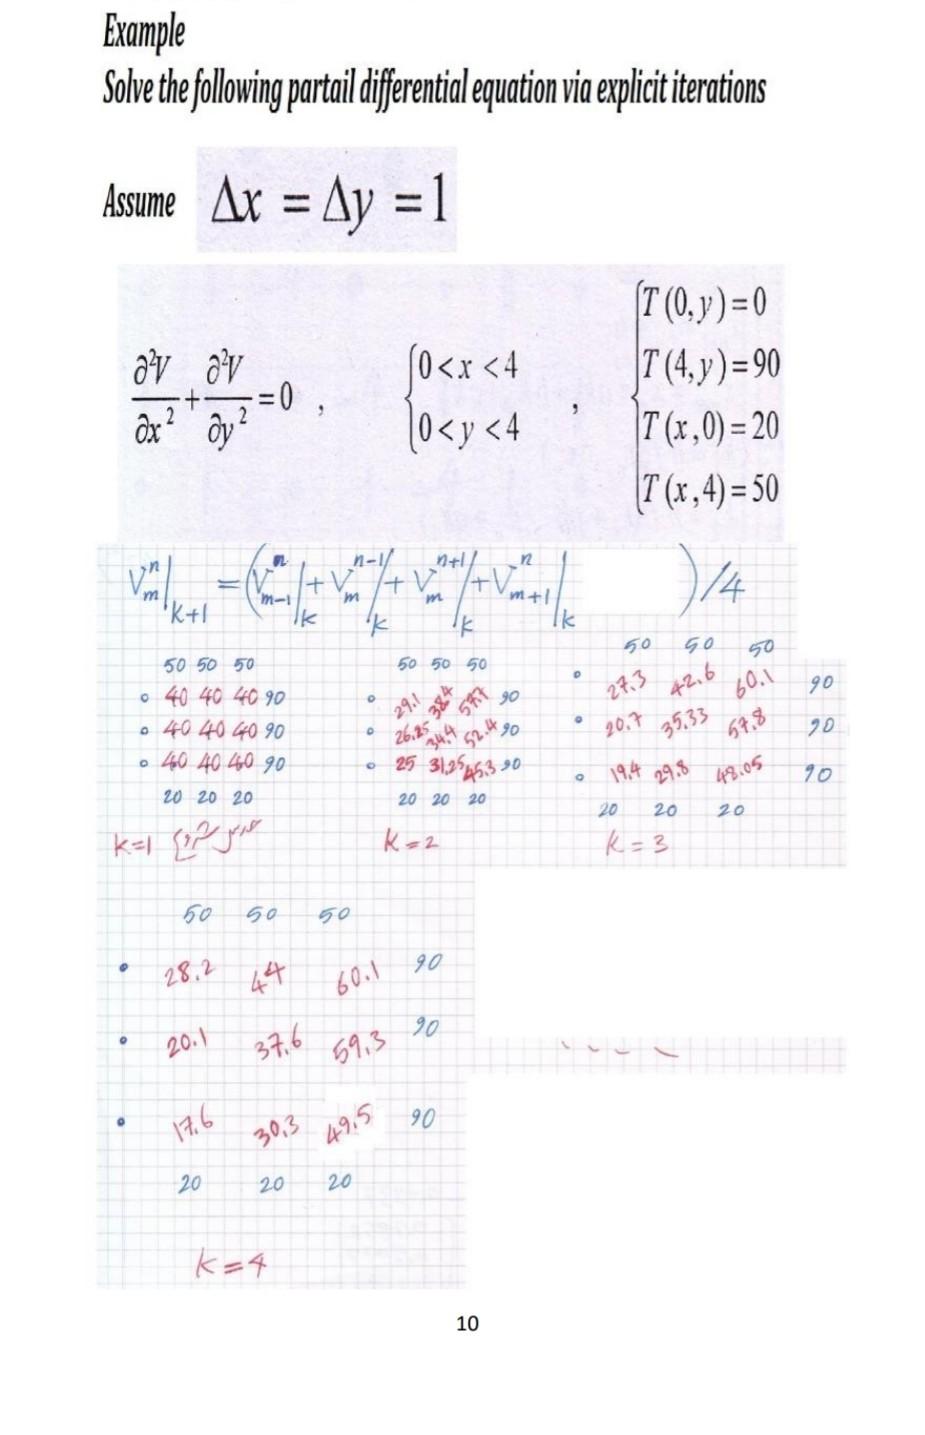 Example
Solve the following partail differential equation via explicit iterations
Assume Δx = Δy = 1
∂²V/∂x² + ∂²V/∂y² = 0 , {0 < x < 4 , {T (0, y) = 0
{0 < y < 4 T (4, y) = 90
T (x, 0) = 20
T (x, 4) = 50
V_m^n|_{K+1} = (V_{m-1}^n|_k + V_m^{n-1}|_k + V_m^{n+1}|_k + V_{m+1}^n|_k)/4
50 50 50
0 40 40 40 90
0 40 40 40 90
0 40 40 40 90
20 20 20
K=1
50 50 50
0 29.1 38.4 57.7 90
0 26.25 34.4 52.4 90
0 25 31.25 45.3 90
20 20 20
K=2
50 50 50
0 27.3 42.6 60.1 90
0 20.7 35.33 57.8 90
0 19.4 29.8 48.05 90
20 20 20
K=3
50 50 50
0 28.2 44 60.1 90
0 20.1 37.6 59.3 90
0 17.6 30.3 49.5 90
20 20 20
K=4
10